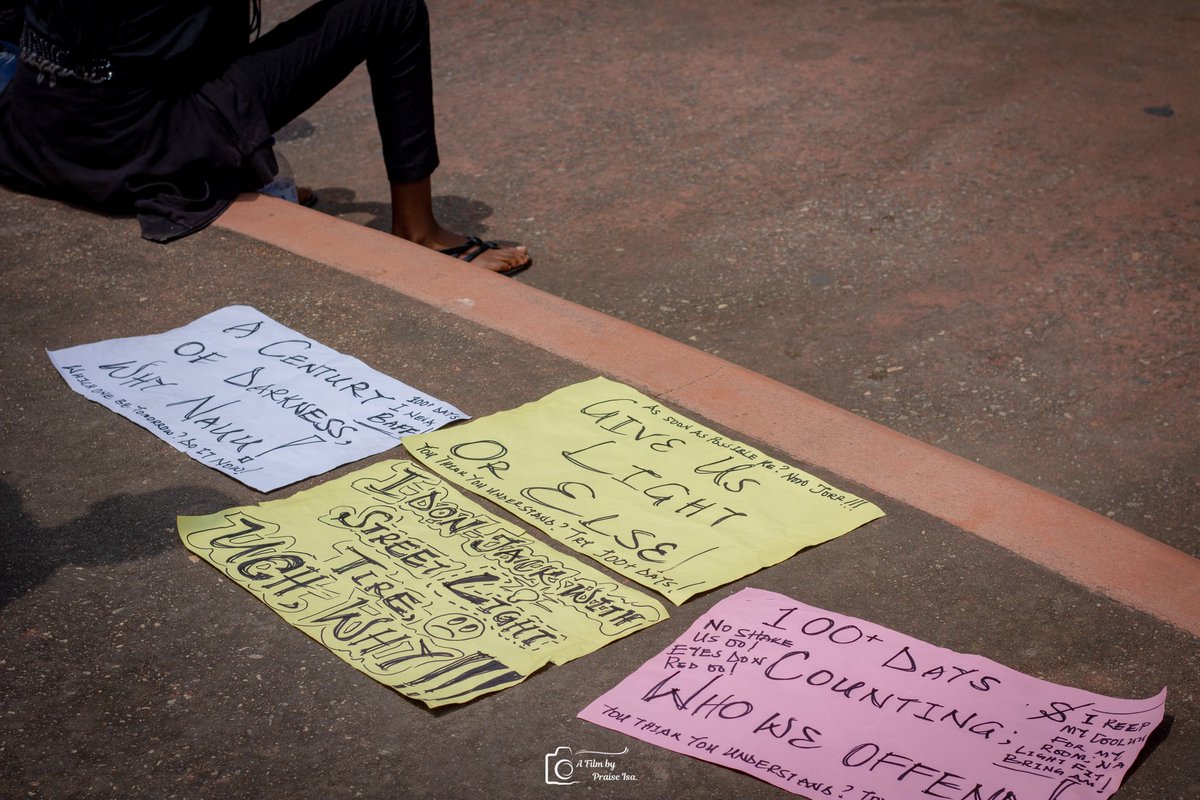 A CENTURY
OF DARKNESS,
WHY NAUU!
100+ DAYS
I NEVA
BAFF
TOMORROW? DO IT NOW!
AS SOON AS POSSIBLE KE? NOOO JORR!!!
GIVE US
LIGHT
OR ELSE!
YOU THINK YOU UNDERSTAND? TRY 100+ DAYS!!
I DON JACK WITH
STREET LIGHT
TIRE,
UGH, WHY!!!!
100+ DAYS
NO SHAKE
US OO!
EYES DON
RED OO!
COUNTING;
WHO WE OFFEND
& I KEEP
MY COOL
FOR MY
ROOM, NA
LIGHT FIT
BRING AM!
YOU THINK YOU UNDERSTAND?
A Film by
Praise Isa.